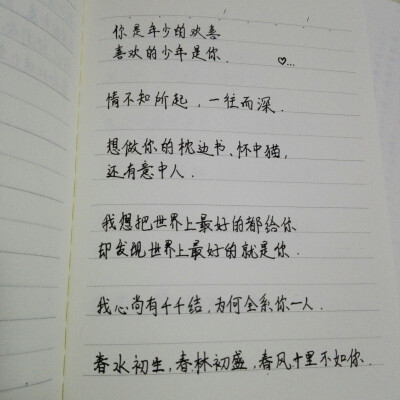 你是年少的欢喜
喜欢的少年是你.
♡...
情不知所起，一往而深.
想做你的枕边书、怀中猫,
还有意中人.
我想把世界上最好的都给你
却发现世界上最好的就是你.
我心尚有千千结,为何全系你一人.
春水初生,春林初盛,春风十里不如你.